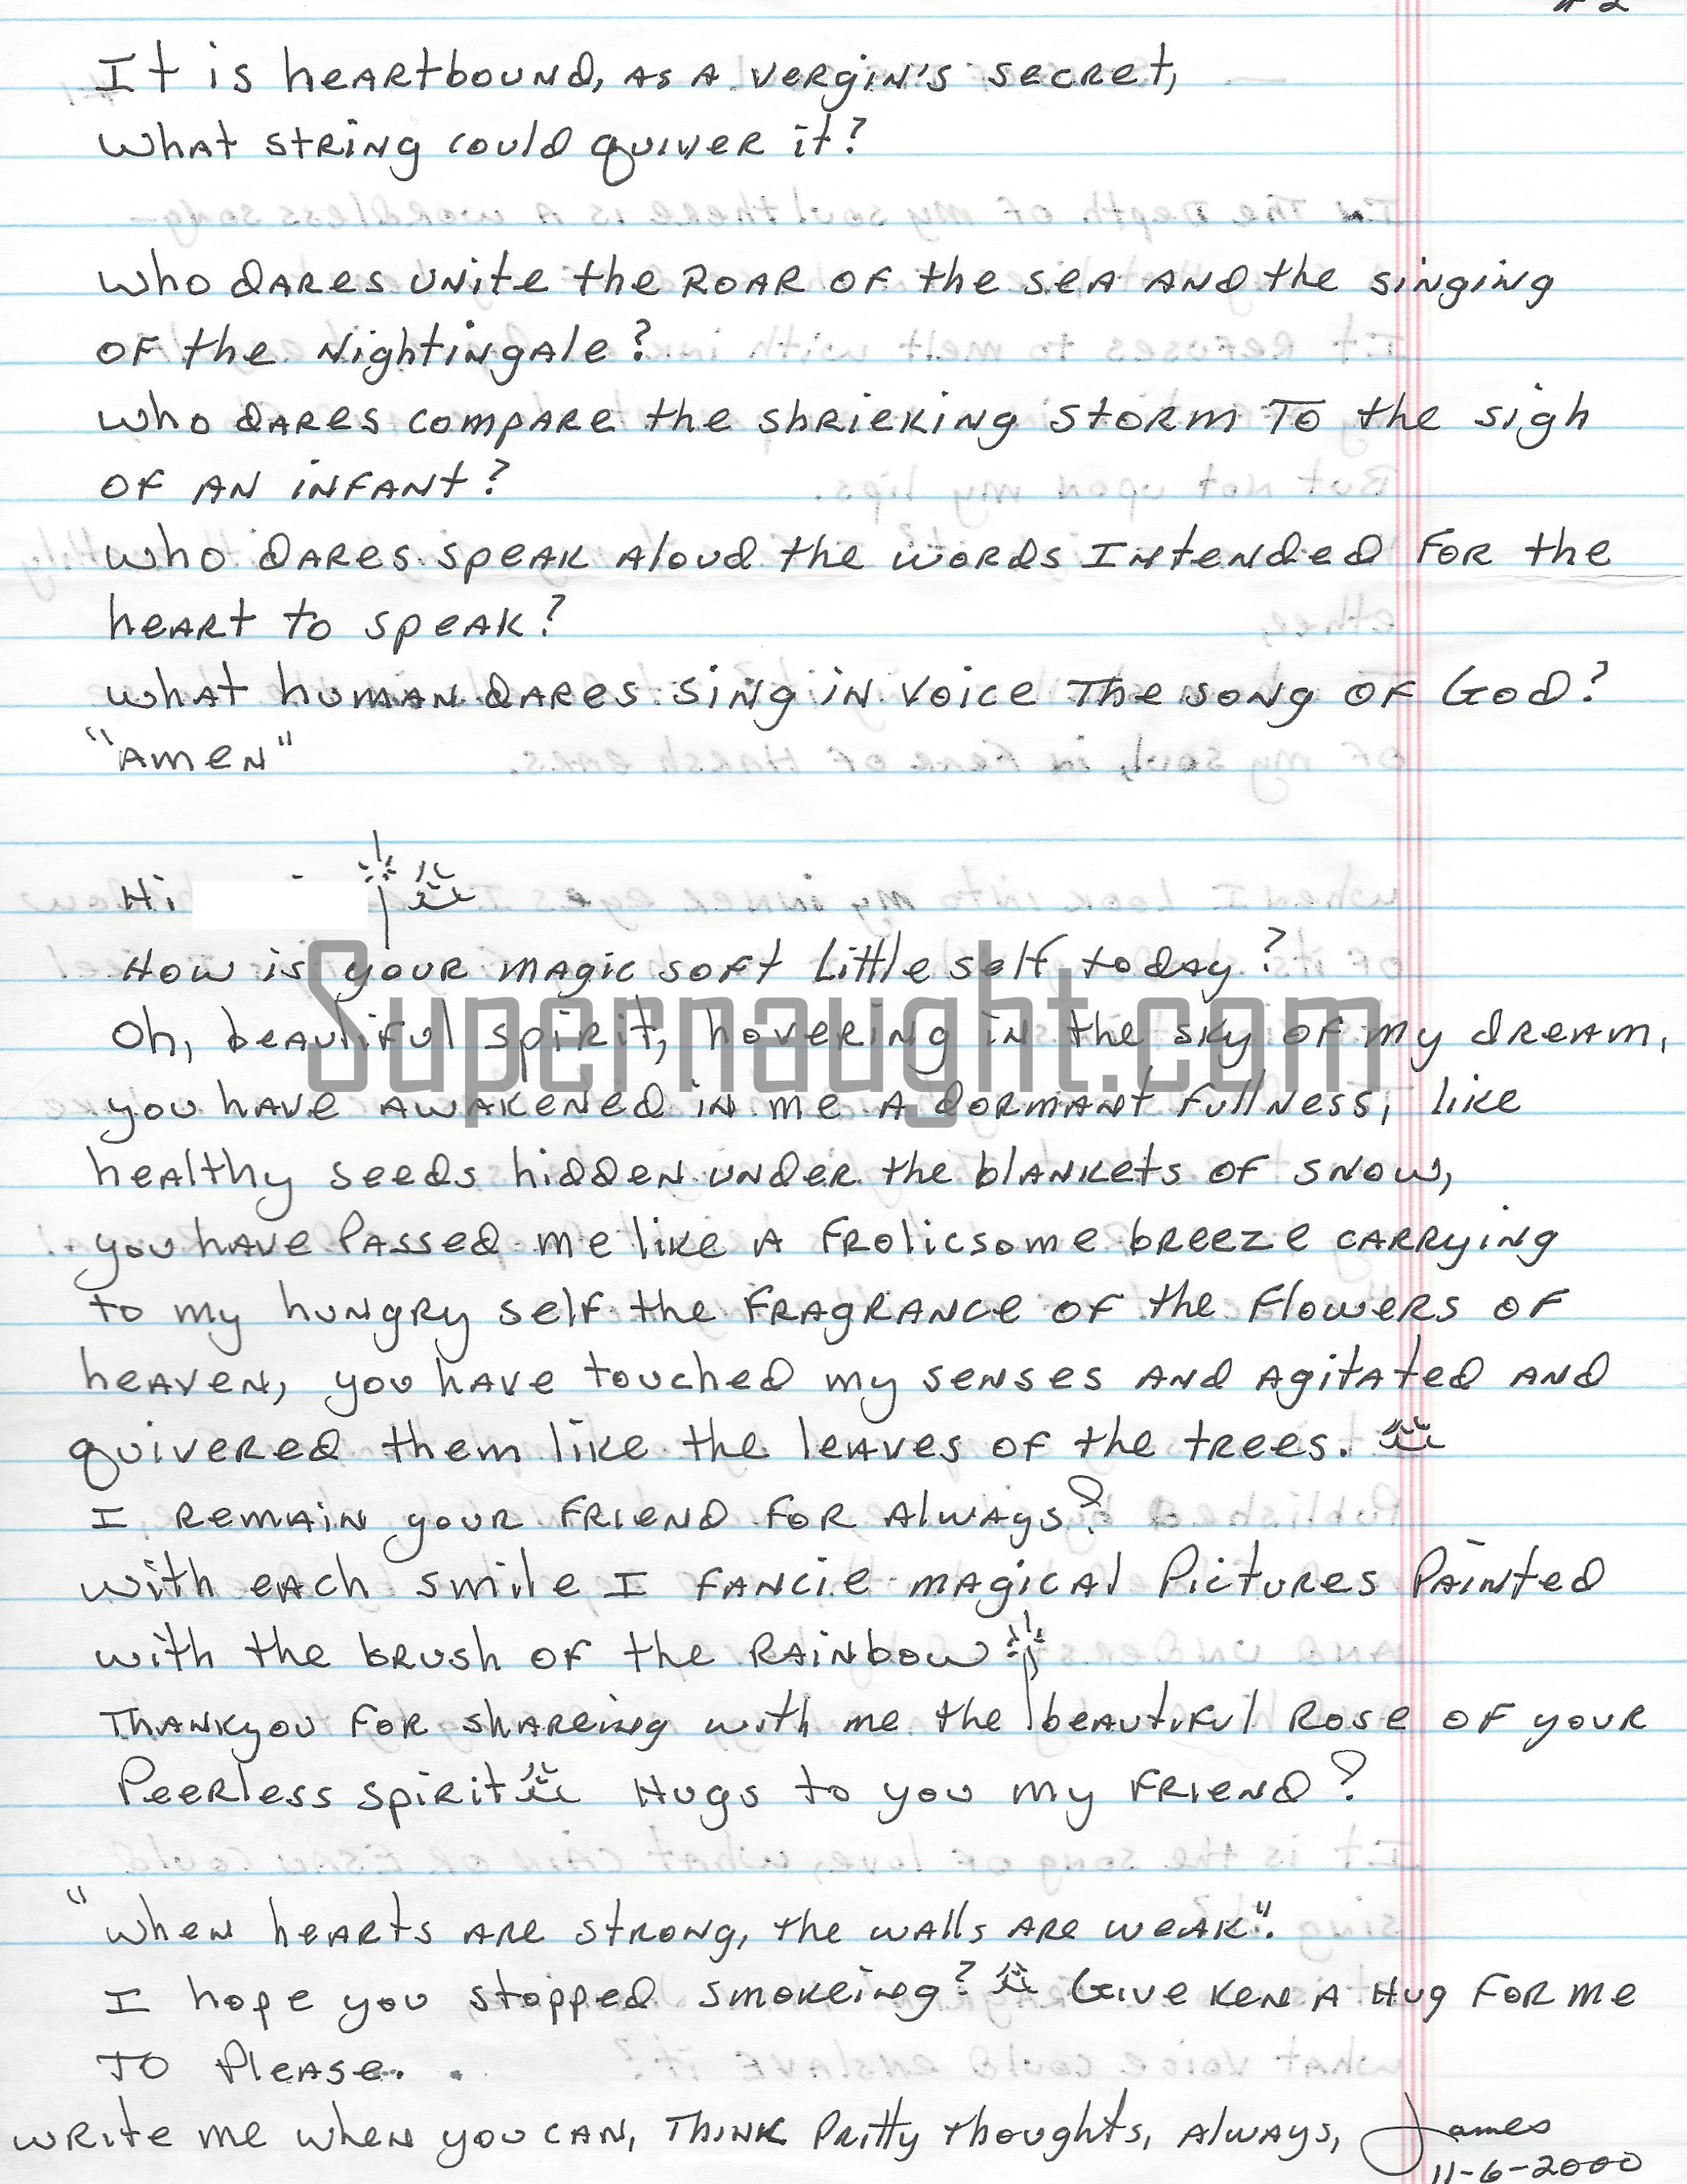 #2
It is heartbound, as a vergin's secret,
What string could quiver it?
Who dares unite the roar of the sea and the singing
of the Nightingale?
Who dares compare the shrieking storm to the sigh
of an infant?
Who dares speak aloud the words Intended for the
heart to speak?
What human dares sing in voice the song of God?
"Amen"
Hi
How is your magic soft little self today?
Oh, beautiful spirit, hovering in the sky of my dream,
you have awakened in me a dormant fullness, like
healthy seeds hidden under the blankets of snow,
you have passed me like a frolicsome breeze carrying
to my hungry self the fragrance of the flowers of
heaven, you have touched my senses and agitated and
quivered them like the leaves of the trees.
I remain your friend for always?
With each smile I fancie magical Pictures Painted
with the brush of the Rainbow
Thankyou for shareing with me the beautiful Rose of your
Peerless spirit Hugs to you my friend?
"When hearts are strong, the walls are weak".
I hope you stopped smokeing? Give Ken a Hug for me
to Please.
Write me when you can, Think Pritty thoughts, always, James
11-6-2000
Supernaught.com